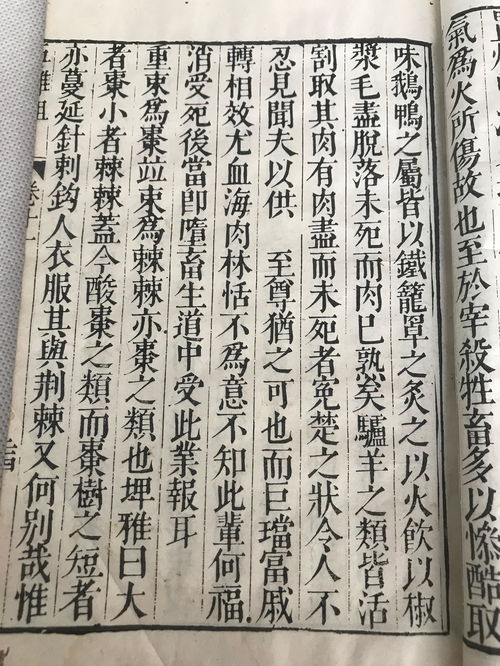 氣為火所傷故也至於宰殺牲畜多以慘酷取
味鵝鴨之屬皆以鐵籠罩之炙之以火飲以椒
漿毛盡脫落未死而肉已熟矣驢羊之類皆活
割取其肉有肉盡而未死者冤楚之狀令人不
忍見聞夫以供　至尊猶之可也而巨璫富戚
轉相效尤血海肉林恬不為意不知此輩何福
消受死後當即墮畜生道中受此業報耳
重朿為棗竝朿為棘棘亦棗之類也埤雅曰大
者棗小者棘棘蓋今酸棗之類而棗樹之短者
亦蔓延針刺鈎人衣服其與荆棘又何別哉惟
五雜俎　卷十一